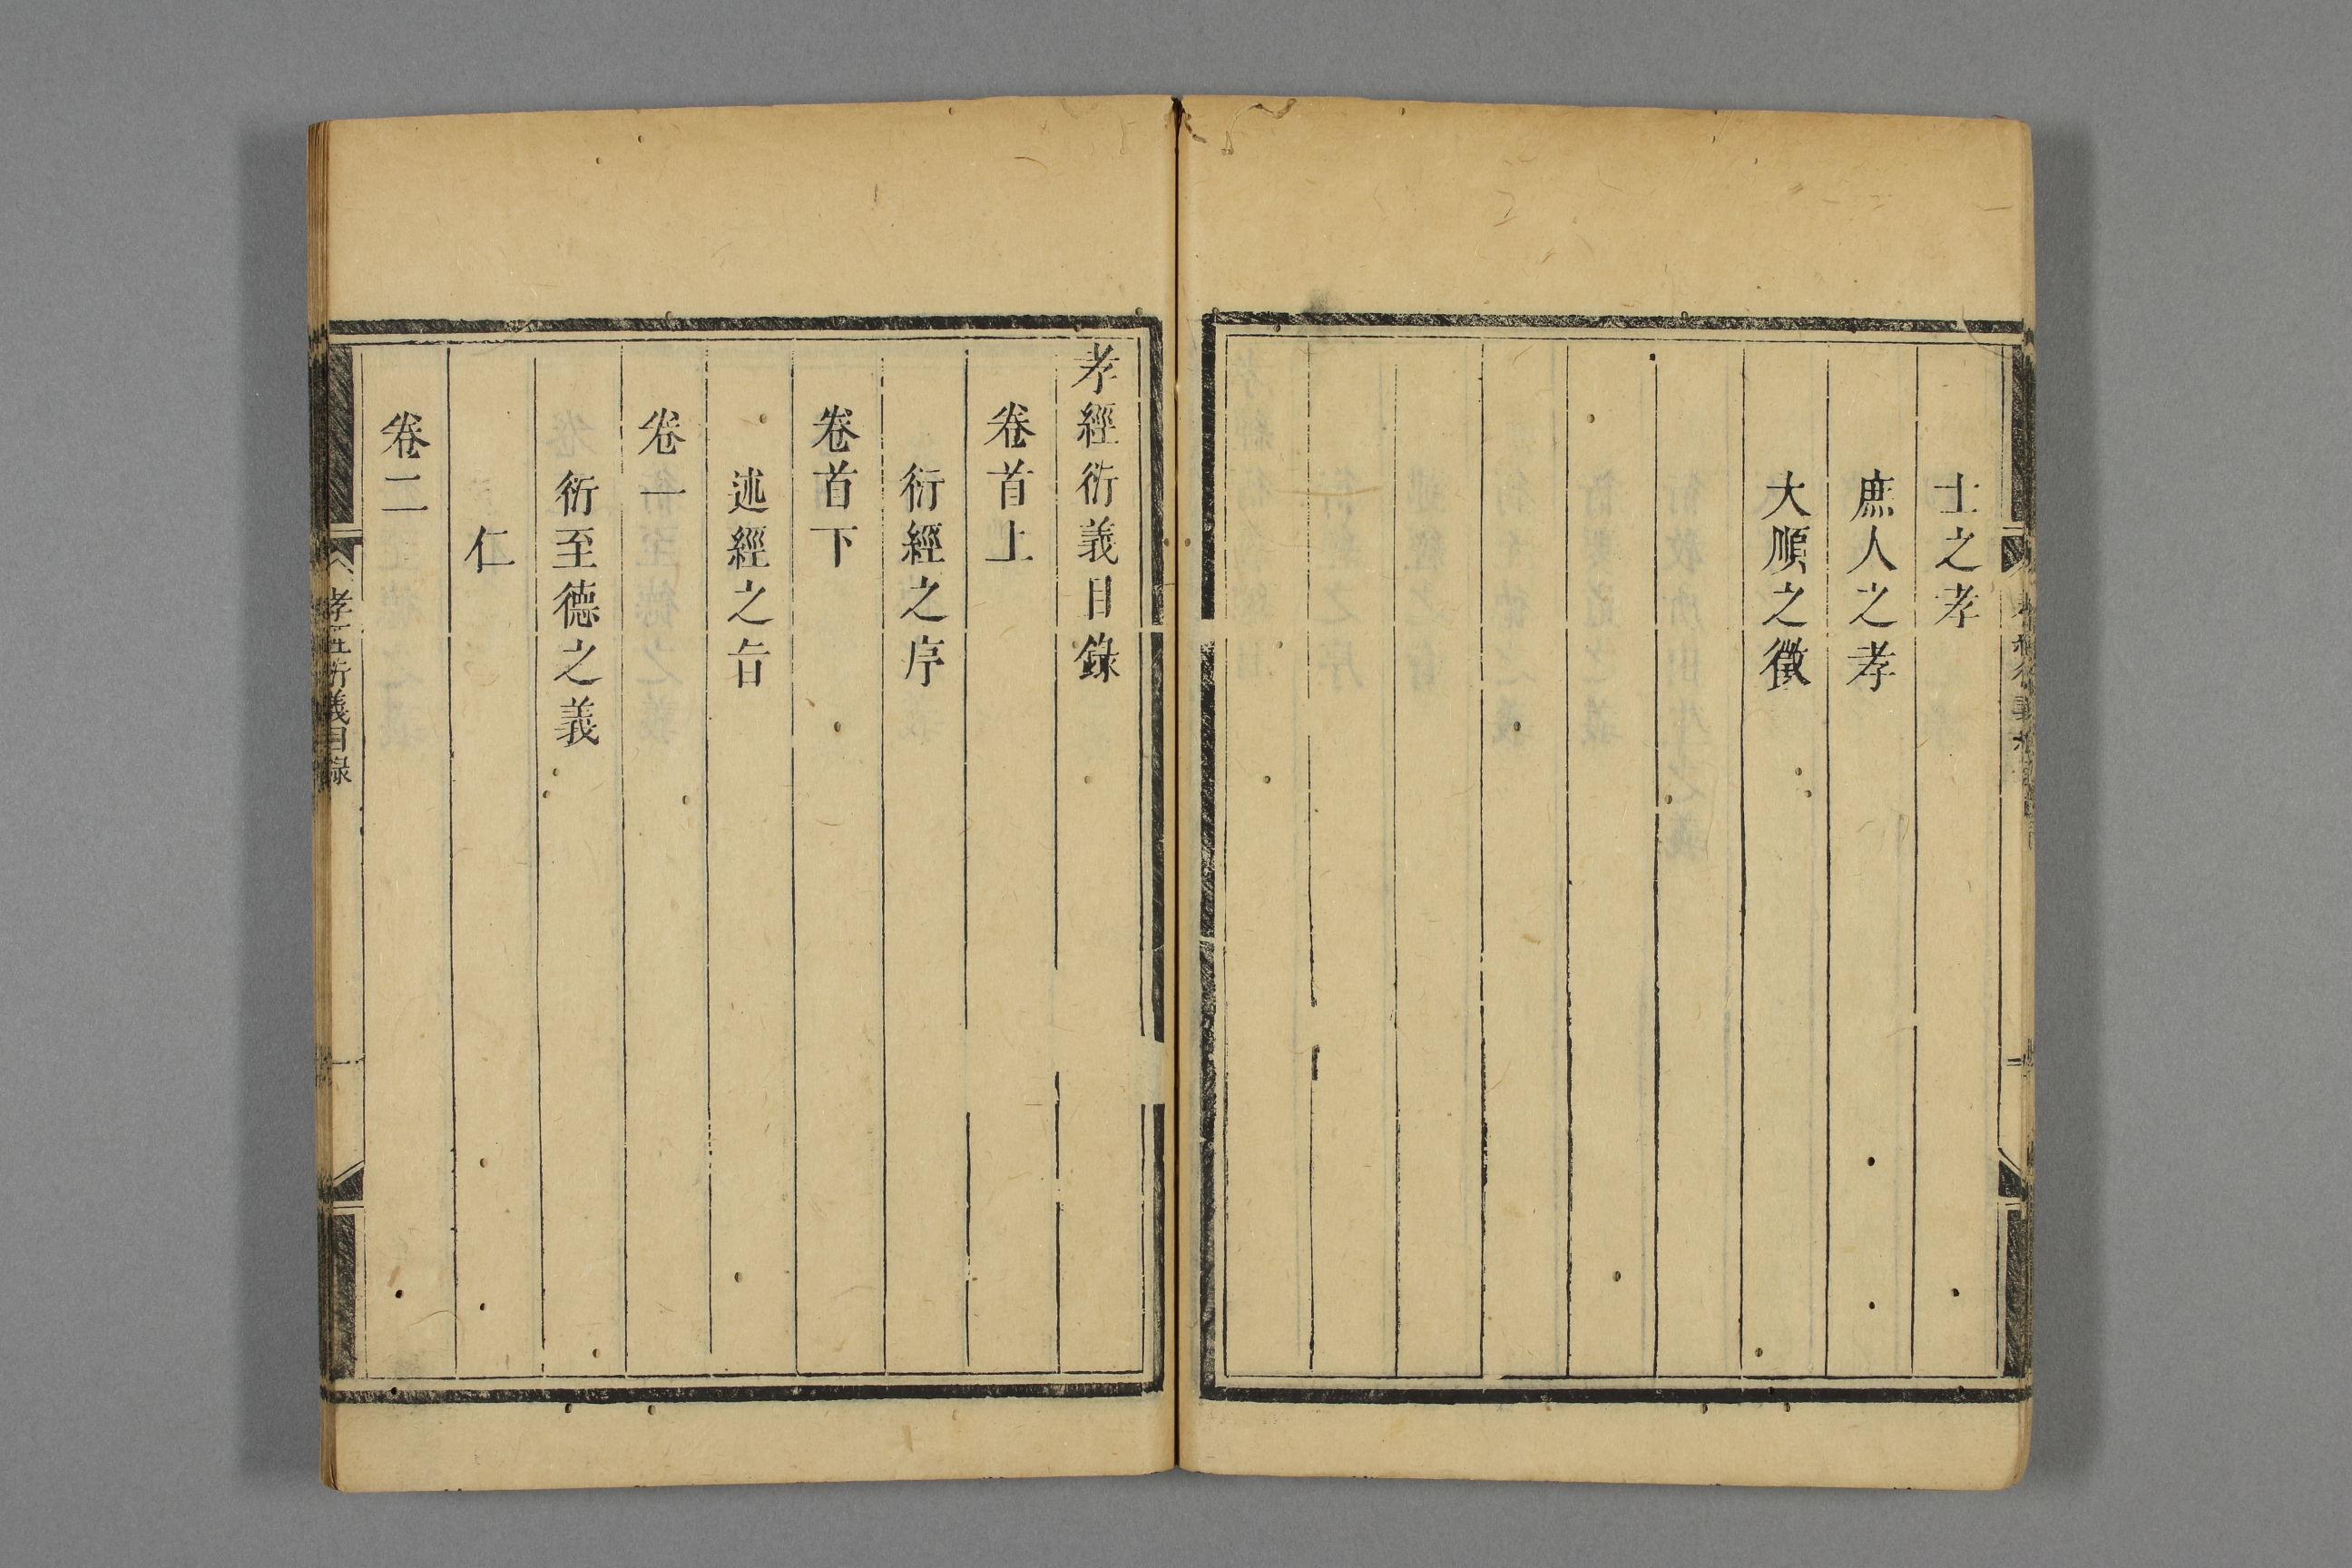 士之孝
庶人之孝
大順之徵
孝經衍義目錄
卷首上
衍經之序
卷首下
述經之旨
卷一
衍至德之義
仁
卷二
孝經衍義目錄